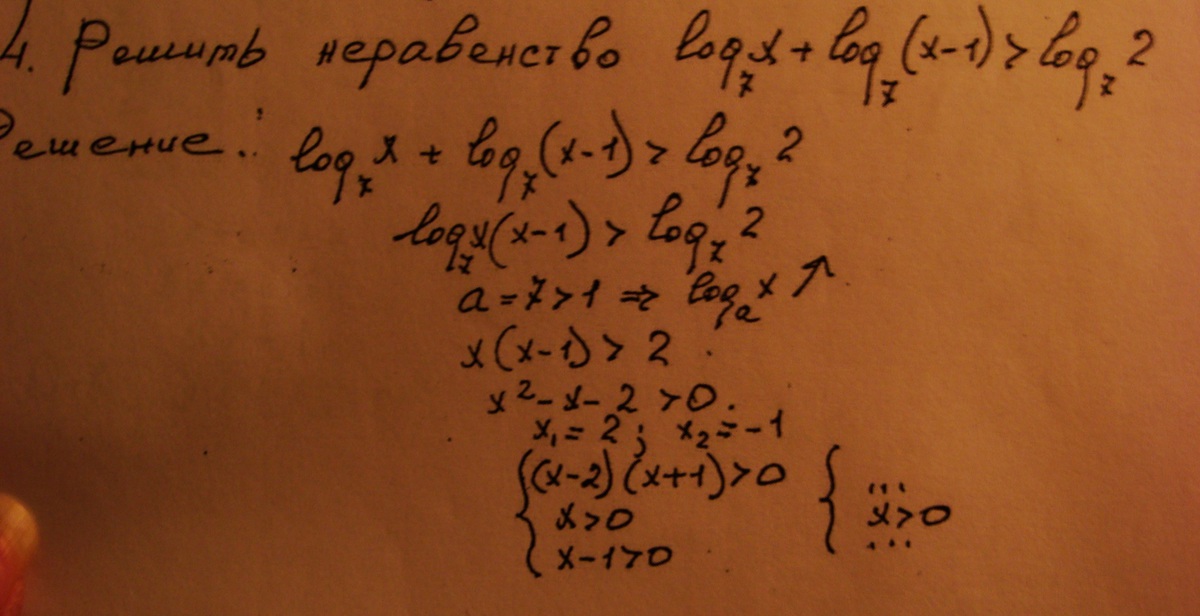 4. Решить неравенство log₇x + log₇(x-1) > log₇2
Решение: log₇x + log₇(x-1) > log₇2
log₇x(x-1) > log₇2
a = 7 > 1 ⇒ logₐx ↗
x(x-1) > 2
x² - x - 2 > 0.
x₁ = 2; x₂ = -1
{(x-2)(x+1) > 0 { ...
x > 0 x > 0
x-1 > 0 ...